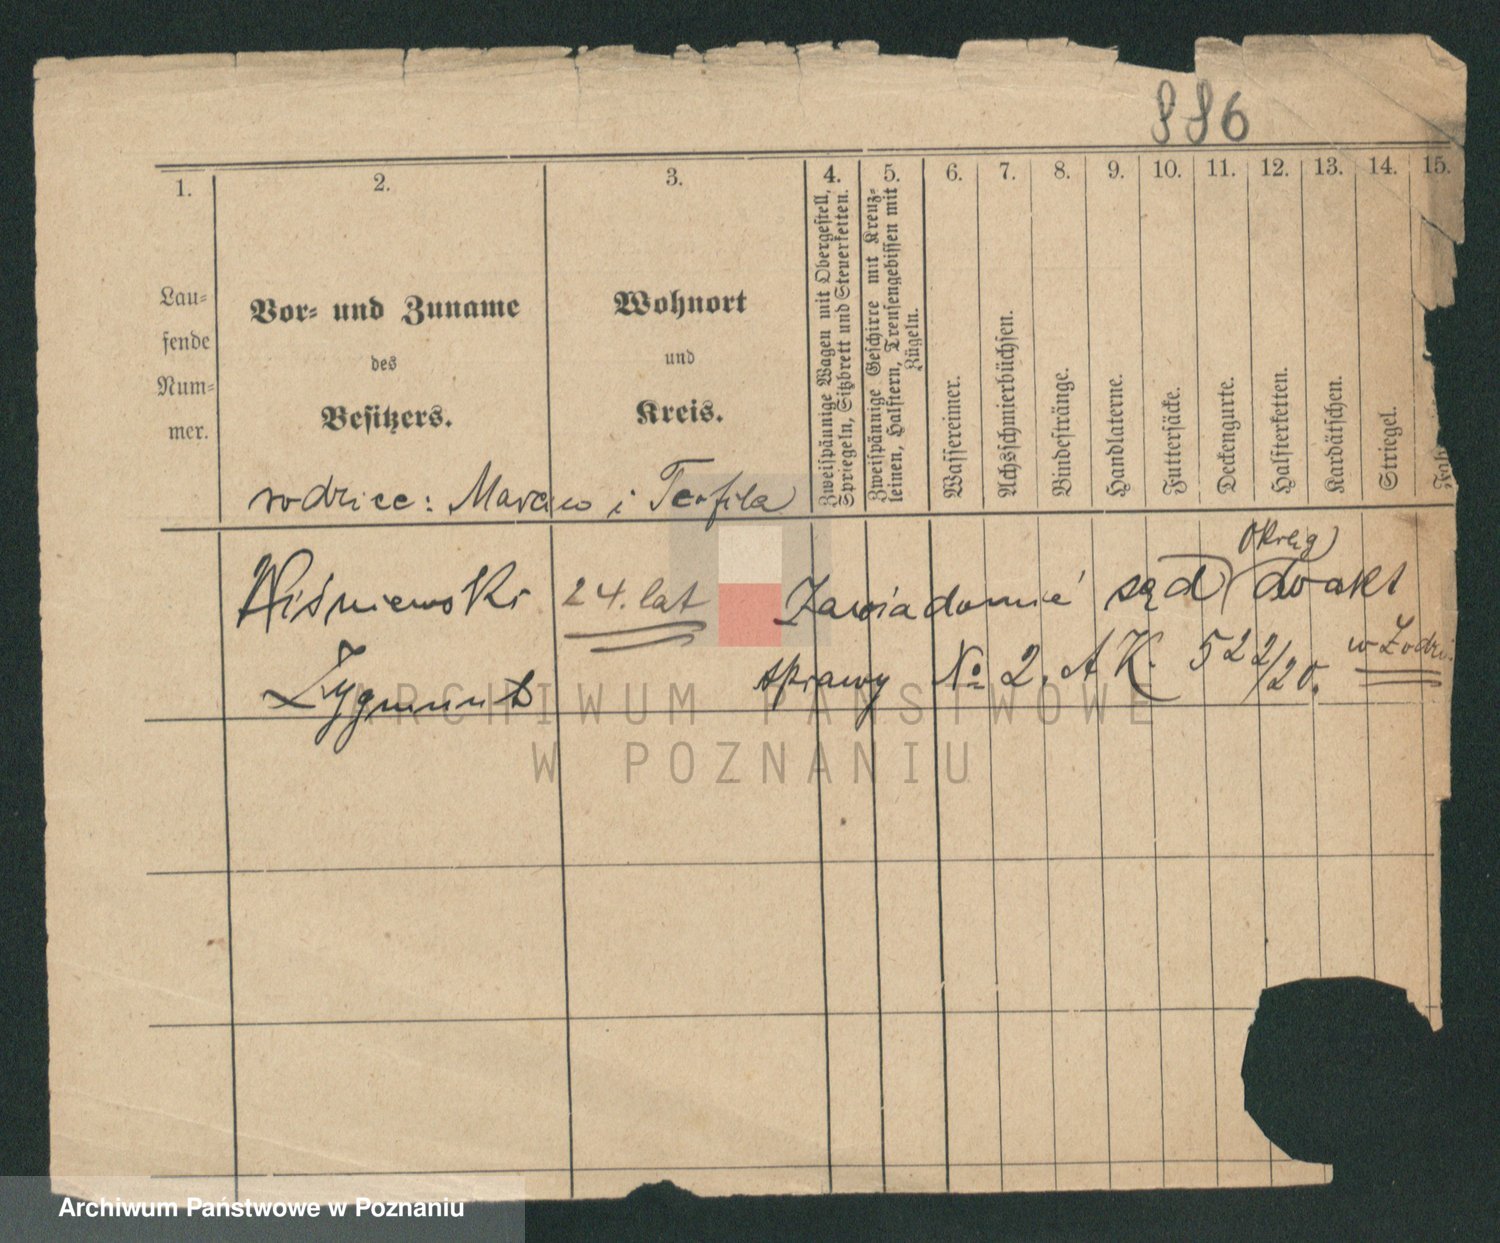 886
1. 2. 3. 4. 5. 6. 7. 8. 9. 10. 11. 12. 13. 14. 15.
Lau-
fende
Num-
mer.
Vor- und Zuname
des
Besitzers.
Wohnort
und
Kreis.
Zweispännige Wagen mit Obergestell,
Spriegeln, Sitzbrett und Steuerketten.
Zweispännige Geschirre mit Kreuz-
leinen, Halftern, Trensengebissen mit
Zügeln.
Wassereimer.
Achsschmierbüchsen.
Bindestränge.
Handlaterne.
Futtersäcke.
Deckengurte.
Halfterketten.
Kardätschen.
Striegel.
rodzice: Marcin i Teofila
Wiśniewski 24. lat Zawiadomić sąd (Okręg) do akt
Zygmunt sprawy № 2. A K. 522/20. w Łodzi.
ARCHIWUM PAŃSTWOWE
W POZNANIU
Archiwum Państwowe w Poznaniu